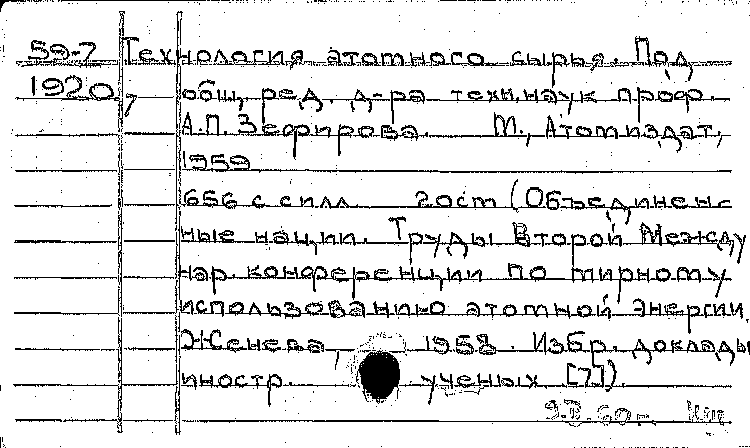 59-7 Технология атомного сырья. Под
1920 7 общ. ред. д-ра техн. наук проф.
А.П. Зефирова. М., Атомиздат,
1959
656 с с илл. 20 ст (Объединен-
ные нации. Труды Второй Между
нар. конференции по мирному
использованию атомной энергии.
Женева, 1958. Избр. доклады
иностр. ученых [7]).
60